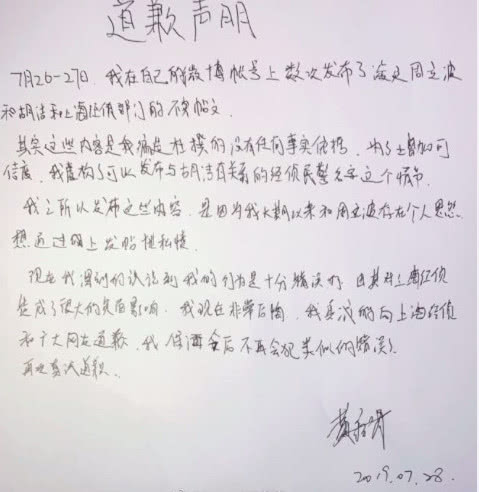 道歉声明
7月26-27日,我在自己的微博帐号上数次发布了涉及周立波
和胡洁和上海经侦部门的不实帖文.
其实这些内容是我编造杜撰的没有任何事实依据,为了增加可
信度,我虚构了可以发布与胡洁有关系的经侦民警名字这个情节.
我之所以发布这些内容,是因为我长期以来和周立波存在个人恩怨.
想通过网上发帖泄私愤.
现在我深刻的认识到我的行为是十分错误的,因其对上海经侦
造成了很大的负面影响,我现在非常后悔,我真诚的向上海经侦
和广大网友道歉,我保证今后不再会犯类似的错误!
再次真诚道歉.
2019.07.28.